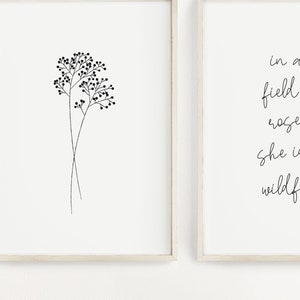 in a
field
rose
she i
wildf